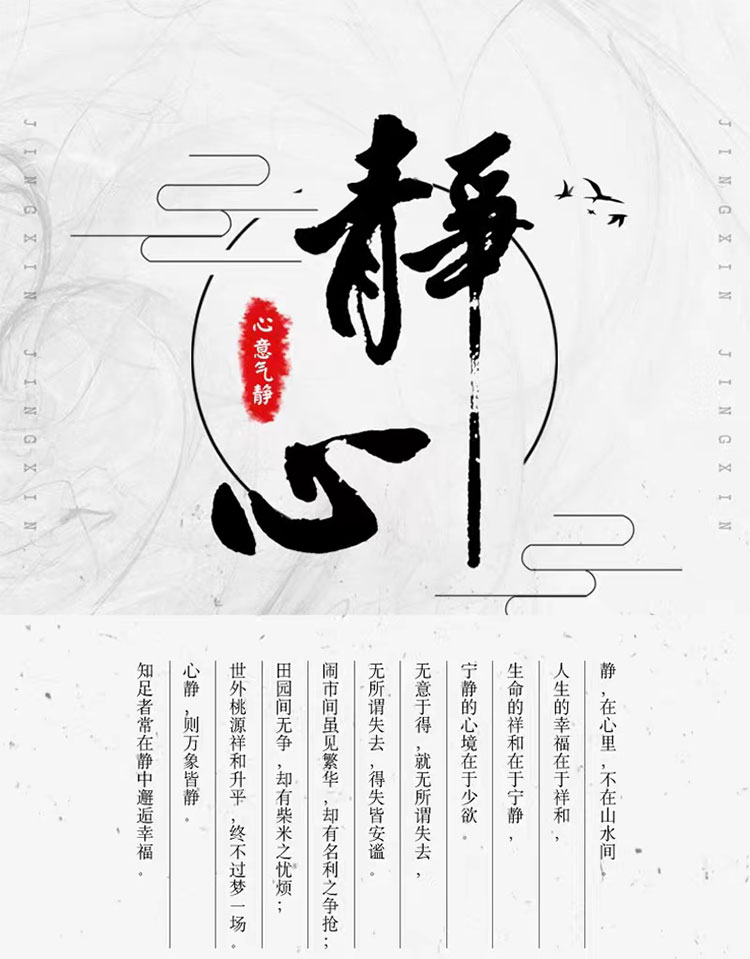 靜心
心意气静
JINGXIN JINGXIN
JINGXIN JINGXIN
静,在心里,不在山水间。
人生的幸福在于祥和,
生命的祥和在于宁静,
宁静的心境在于少欲。
无意于得,就无所谓失去,
无所谓失去,得失皆安谧。
闹市间虽见繁华,却有名利之争抢;
田园间无争,却有柴米之忧烦;
世外桃源祥和升平,终不过梦一场。
心静,则万象皆静。
知足者常在静中邂逅幸福。